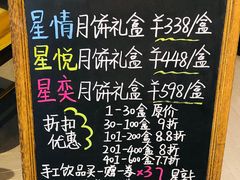 星情月饼礼盒 ¥338/盒
星悦月饼礼盒 ¥448/盒
星奕月饼礼盒 ¥598/盒
折扣优惠
1-30盒 原价
30-100盒 9折
101-200盒 8.8折
201-400盒 8折
401-600盒 7.7折
手工饮品买一赠一券×37 星